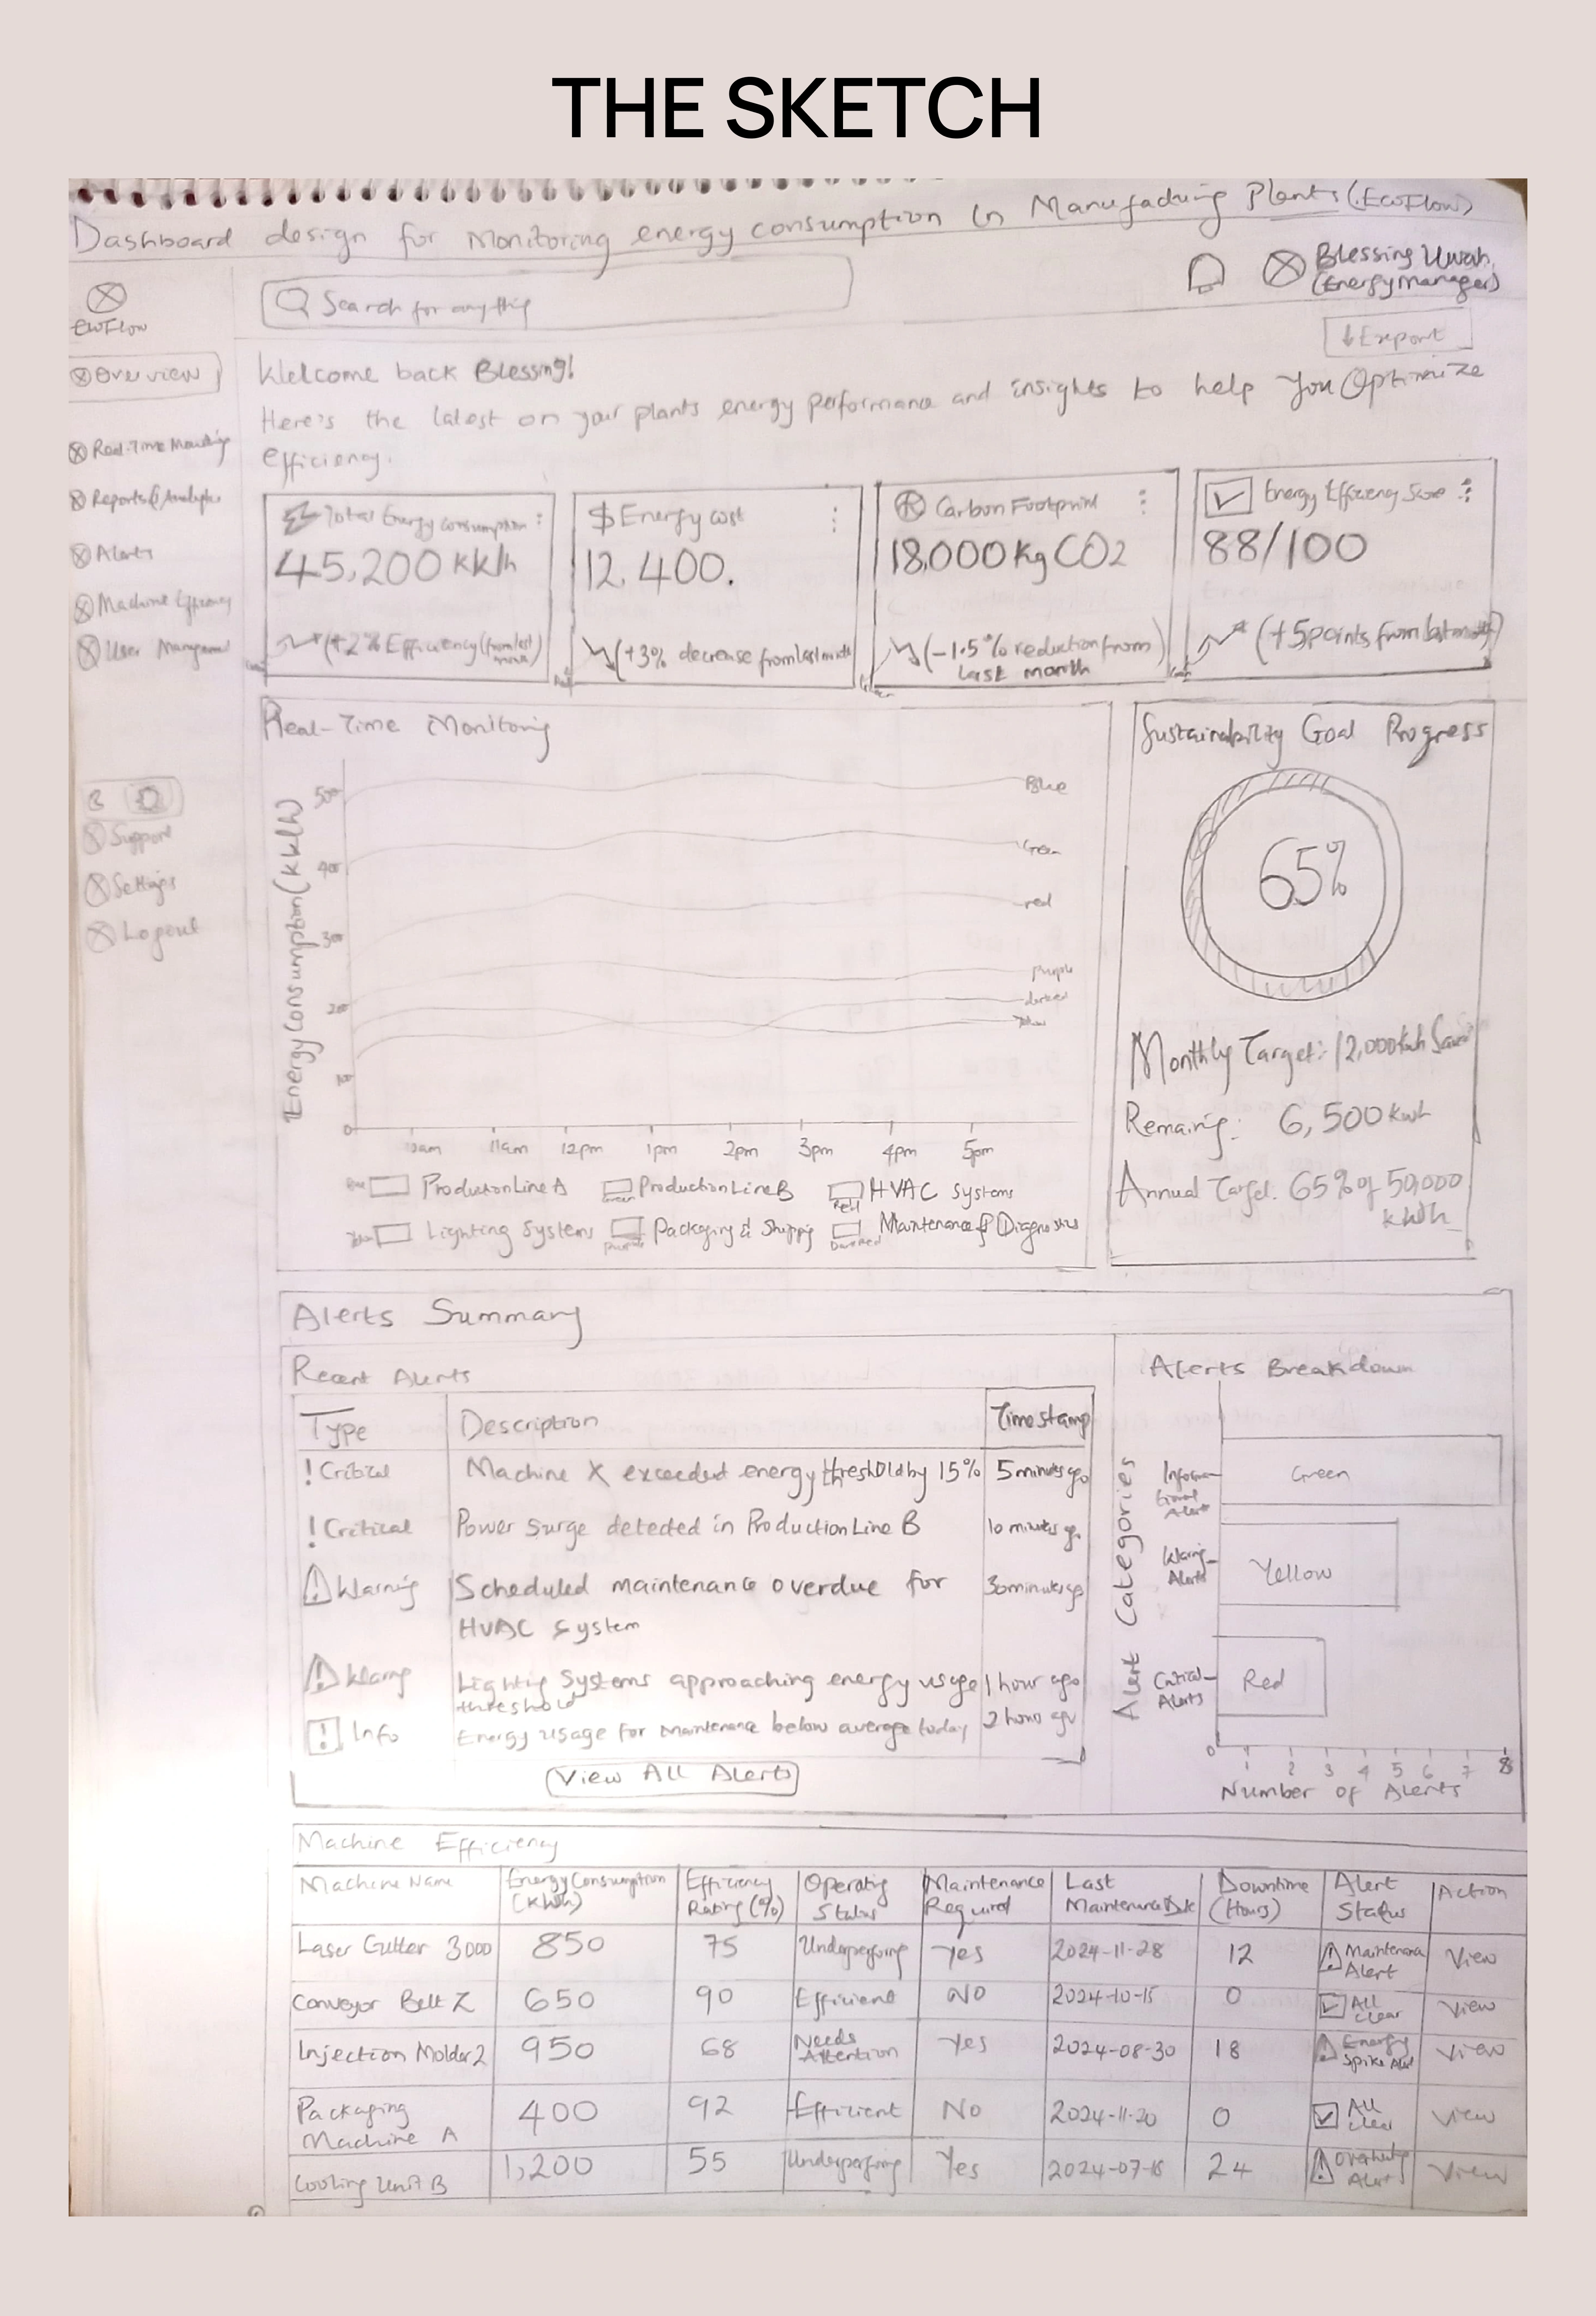 THE SKETCH
Dashboard design for Monitoring energy consumption in Manufacturing Plants (EcoFlow)
Search for anything
Blessing Uwah
(Energy manager)
EcoFlow
Export
Overview
Welcome back Blessing!
Here's the latest on your plants energy performance and insights to help you Optimize
efficiency.
Real-Time Monitoring
Reports & Analytics
Alerts
Machine Efficiency
User Management
Total Energy consumption
45,200 kWh
(+2% Efficiency (from last
$ Energy cost
12,400.
(+3% decrease from last month
Carbon Footprint
18,000 Kg CO2
(-1.5% reduction from
last month
Energy Efficiency Score
88/100
(+5 points from last month)
Support
Settings
Logout
Real-Time Monitoring
Energy Consumption (kWh)
500
400
300
200
100
0
Blue
Green
red
Purple
darkred
Yellow
10am 11am 12pm 1pm 2pm 3pm 4pm 5pm
Blue Production Line A Green Production Line B Red HVAC Systems
Yellow Lighting Systems Purple Packaging & Shipping Dark Red Maintenance & Diagnostics
Sustainability Goal Progress
65%
Monthly Target: 12,000 kwh Saved
Remaing: 6,500 kwh
Annual Target. 65% of 50,000
kWh
Alerts Summary
Recent Alerts
Type Description Timestamp
! Critical Machine X exceeded energy threshold by 15% 5 minutes ago
! Critical Power Surge detected in Production Line B 10 minutes ago
! Warning Scheduled maintenance overdue for 30 minutes ago
HVAC System
! Warning Lighting Systems approaching energy usage 1 hour ago
threshold
! Info Energy usage for Maintenance below average today 2 hours ago
View All Alerts
Alerts Breakdown
Alert Categories
Informa-
tional
Alerts
Green
Warning
Alerts
Yellow
Critical
Alerts
Red
0 1 2 3 4 5 6 7 8
Number of Alerts
Machine Efficiency
Machine Name Energy Consumption (kWh) Efficiency Rating (%) Operating Status Maintenance Required Last Maintenance Date Downtime (Hours) Alert Status Action
Laser Cutter 3000 850 75 Underperforming Yes 2024-11-28 12 ! Maintenance Alert View
Conveyor Belt Z 650 90 Efficient NO 2024-10-15 0 All clear View
Injection Molder 2 950 68 Needs Attention Yes 2024-08-30 18 ! Energy Spike Alert View
Packaging Machine A 400 92 Efficient No 2024-11-20 0 All clear View
Cooling Unit B 1,200 55 Underperforming Yes 2024-07-18 24 ! Overheating Alert View